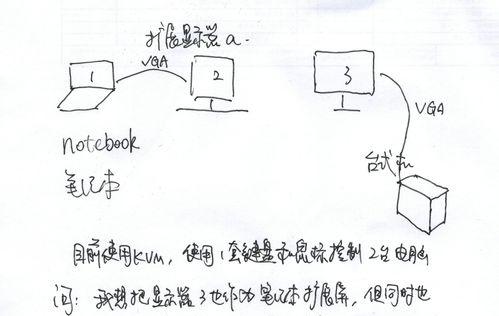 扩展显示器a.
VGA
1
2
3
VGA
台式机
notebook
笔记本
目前使用KVM, 使用1套键盘和鼠标控制2台电脑
问: 我想把显示器3也作为笔记本扩展屏, 但同时也